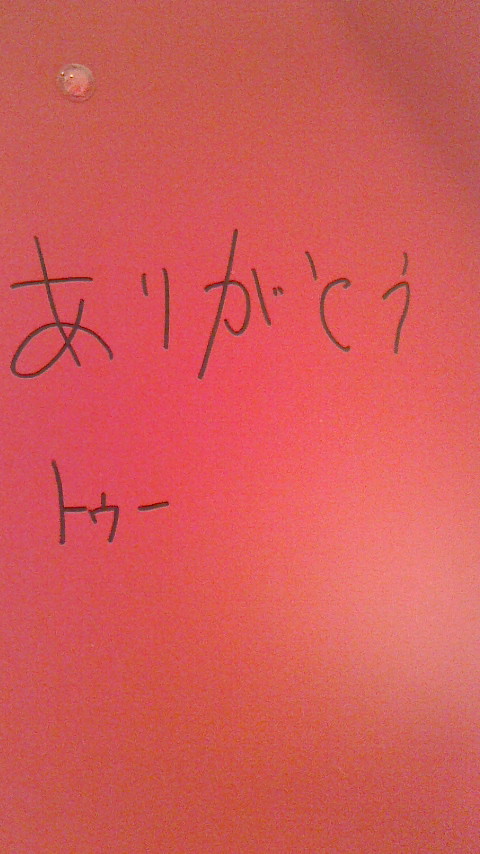 ありがとう
トゥー